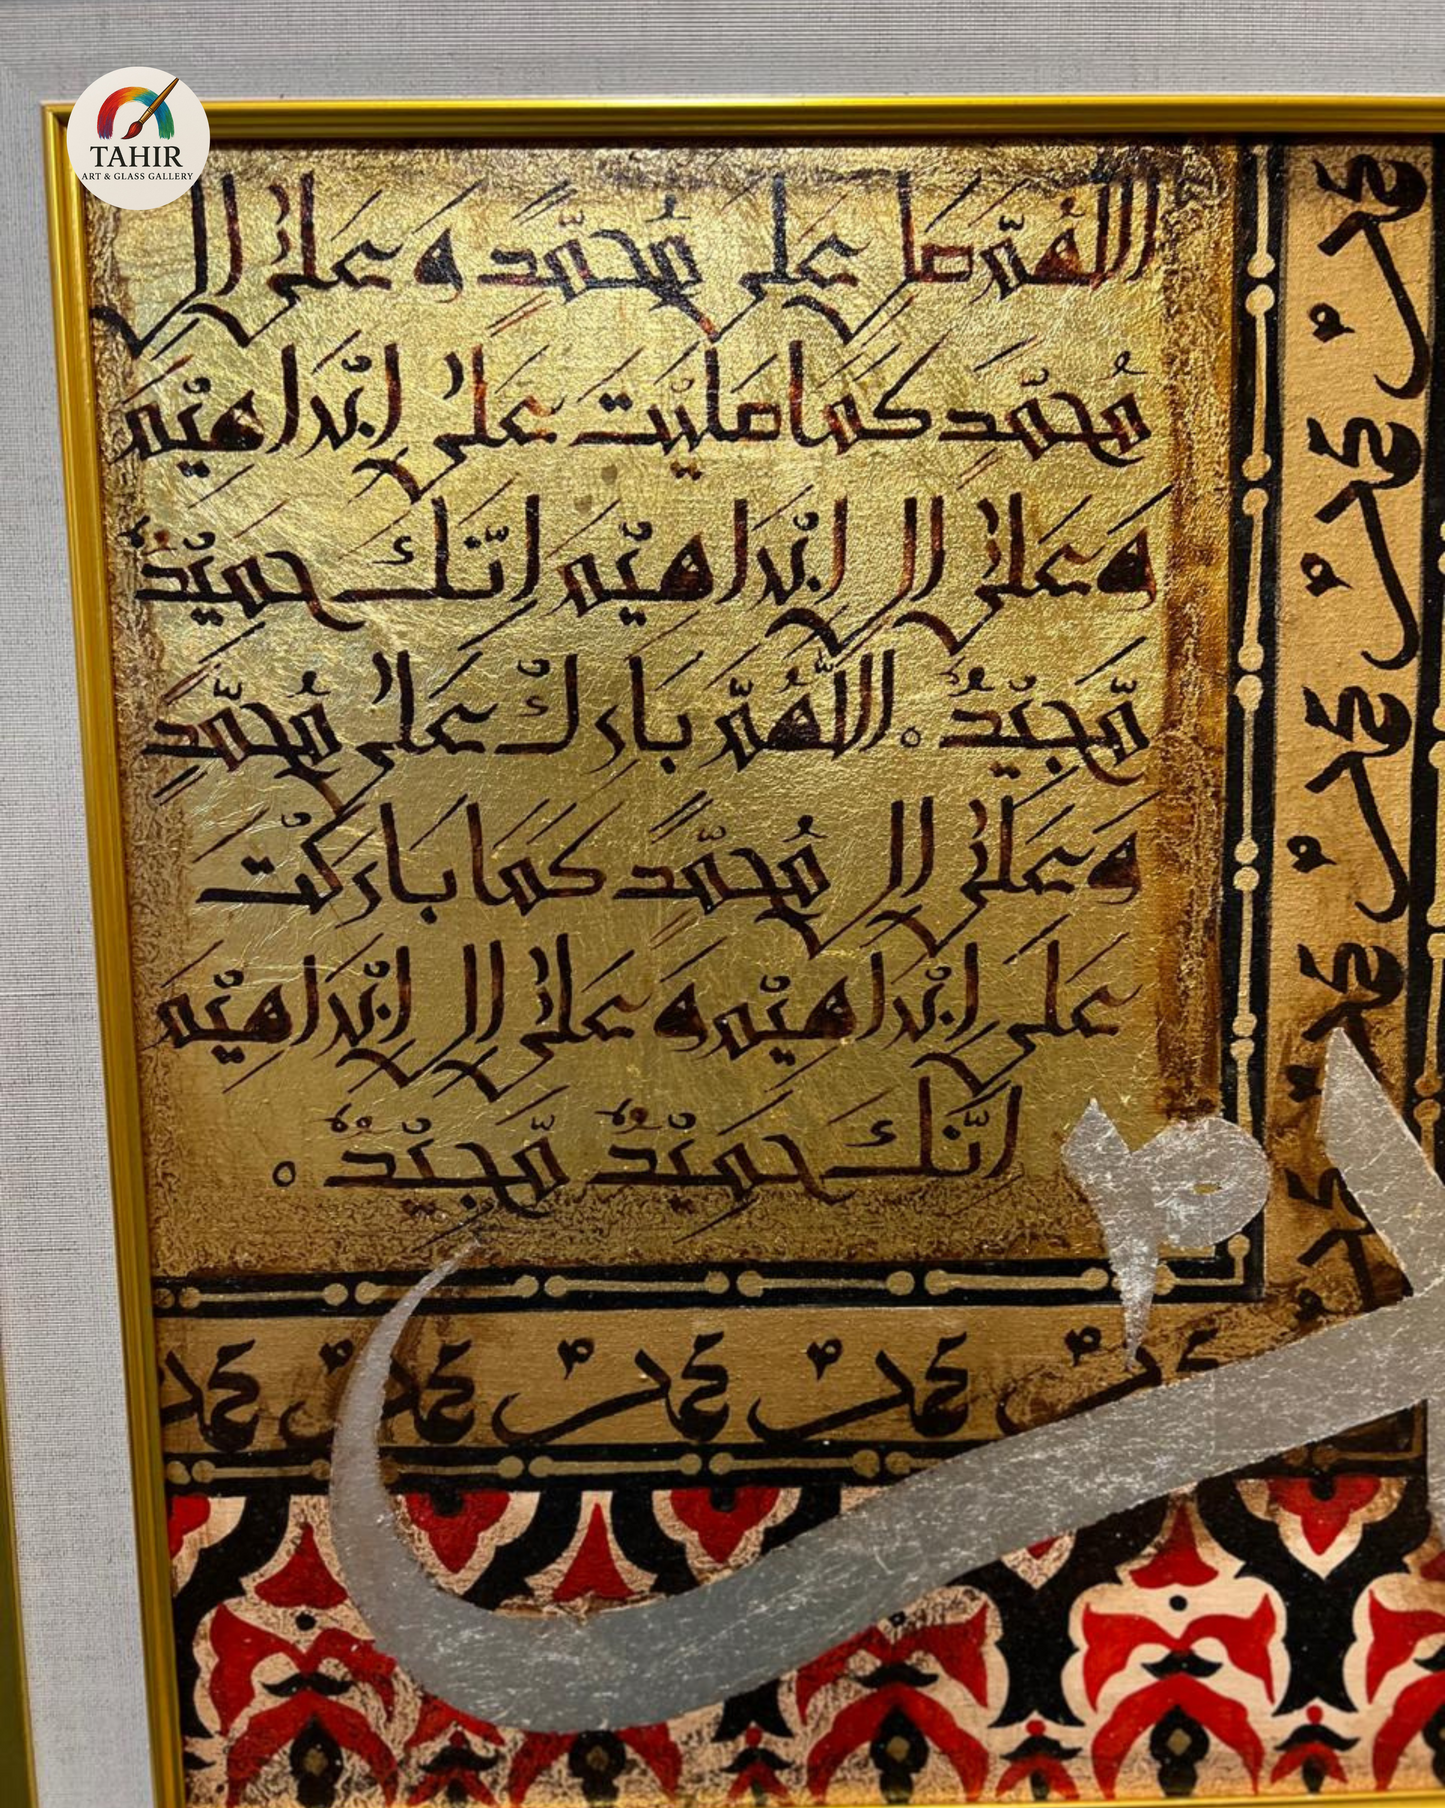 TAHIR
ART & GLASS GALLERY
اللهم صل على محمد وعلى ال
محمد كما صليت على ابراهيم
وعلى ال ابراهيم انك حميد
مجيد ه اللهم بارك على محمد
وعلى ال محمد كما باركت
على ابراهيم وعلى ال ابراهيم
انك حميد مجيد ه
محمد محمد محمد محمد
محمد محمد محمد